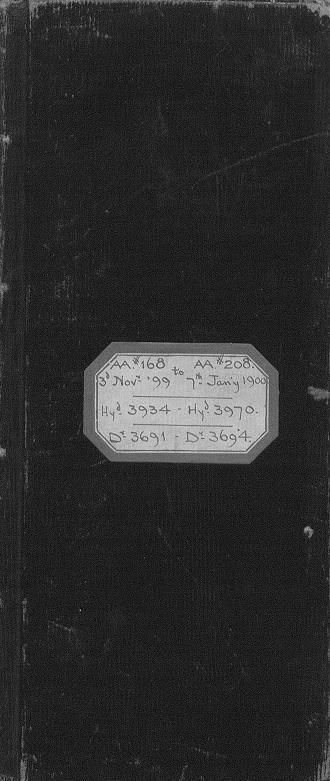 AA.#168 to AA.#208.
3d Novr. '99 7th Jan'y 1900
Hyd. 3934 - Hyd. 3970.
Dr. 3691 - Dr. 3694.